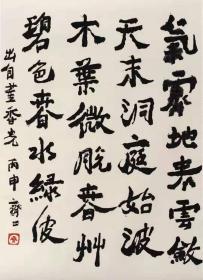 氣霽地表雲斂
天末洞庭始波
木葉微脫春艸
碧色春水緑波
出自董香光 丙申